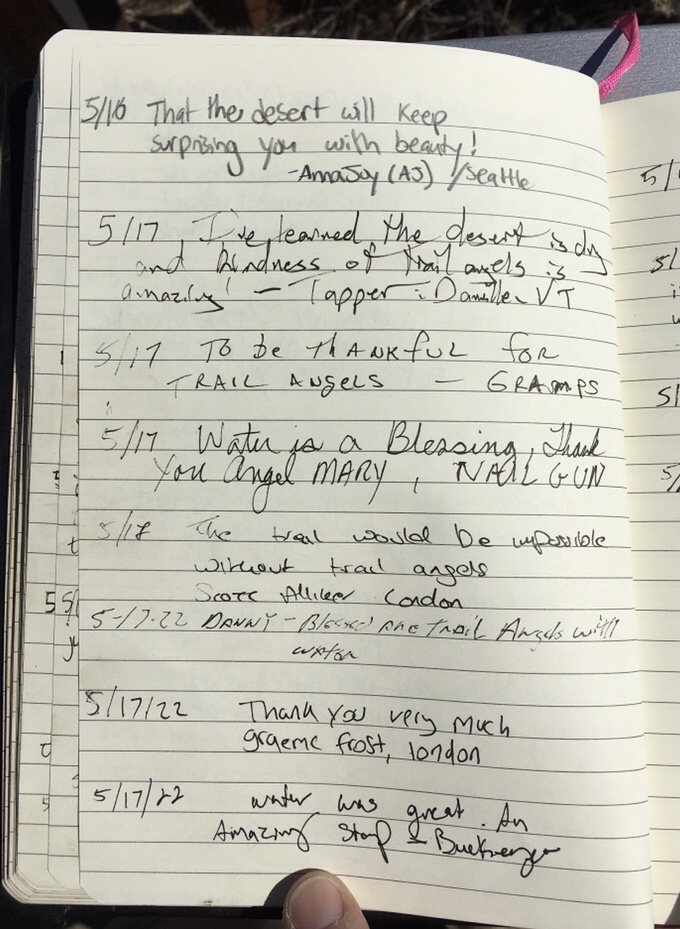 5/16 That the desert will keep
surprising you with beauty!
-AnnaJoy (AJ) /Seattle
5/17, I've learned the desert is dry
and kindness of trail angels is
amazing! - Tapper : Danville VT
5/17 To be thankful for
TRAIL ANGELS - GRAMPS
5/17 Water is a Blessing, Thank
You Angel MARY, NAIL GUN
5/18 The trail would be impossible
without trail angels
Scott London
5-17-22 DANNY - Blessed are trail Angels with
water
5/17/22 Thank you very much
graeme frost, london
5/17/22 water was great. An
Amazing stop -